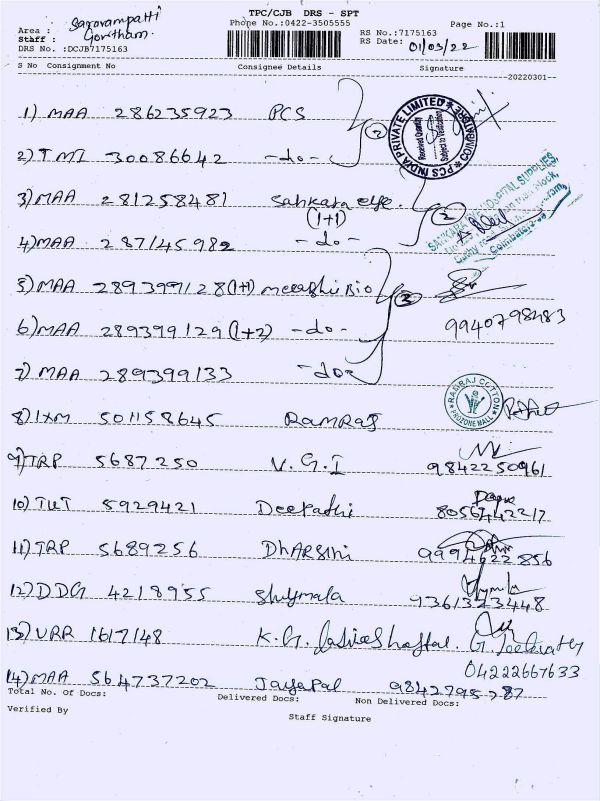 TPC/CJB DRS - SPT
Area : Saravampatti
Phone No.:0422-3505555
Page No.:1
Staff : Gowtham.
RS No.:7175163
DRS No. :DCJB7175163
RS Date: 01/03/22
S No Consignment No Consignee Details Signature
20220301
1) MAA 286235923 PCS
PCS INDIA PRIVATE LIMITED
COIMBATORE
Received Quantity
Subject to Verification
2
2) TMI 30086642 -do-
3) MAA 281258481 Sankara eye.
(1+1)
2
4) MAA 287145982 -do-
5) MAA 289399128 (1+1) Meenakshi Bio
3
6) MAA 289399129 (1+2) -do-
9940798483
7) MAA 289399133 -do-
8) IXM 501158645 RAMRAJ
RAMRAJ COTTON
PROZONE MALL
9) TRP 5687250 V.G.I 9842250961
10) TUT 5929421 Deepathi 8056442217
11) TRP 5689256 DhARSini 9994622856
12) DDG 4218955 Shymala 9361323448
13) VRR 1617148 K.G.
04222667633
14) MAA 564737202 Jayapal 9842795787
Total No. Of Docs: Delivered Docs: Non Delivered Docs:
Verified By
Staff Signature